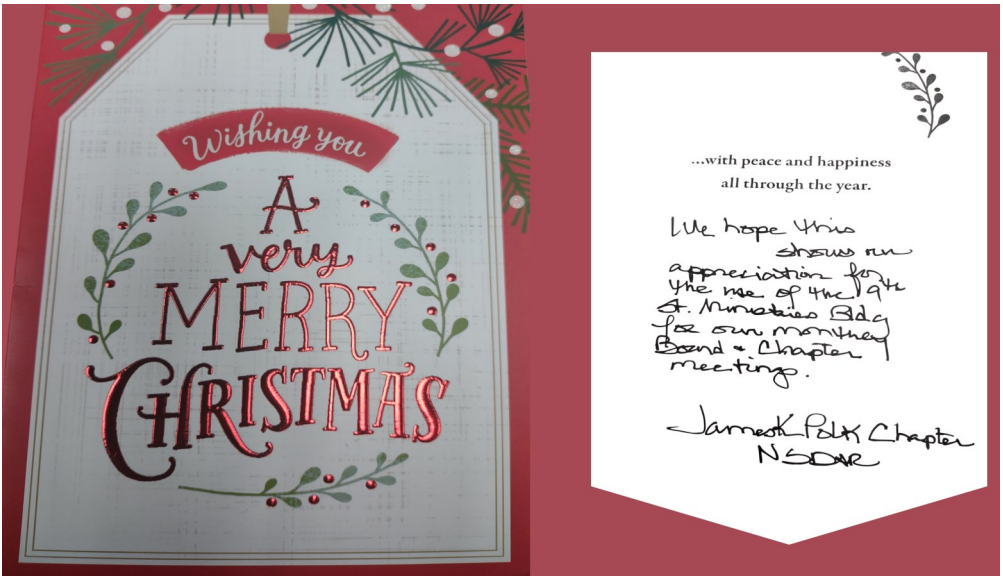 Wishing you
A
very
MERRY
CHRISTMAS
...with peace and happiness
all through the year.
We hope this
shows our
appreciation for
the use of the 19th
St. Ministries Bldg
for our monthly
Board & Chapter
meetings.
James K Polk Chapter
NSDAR